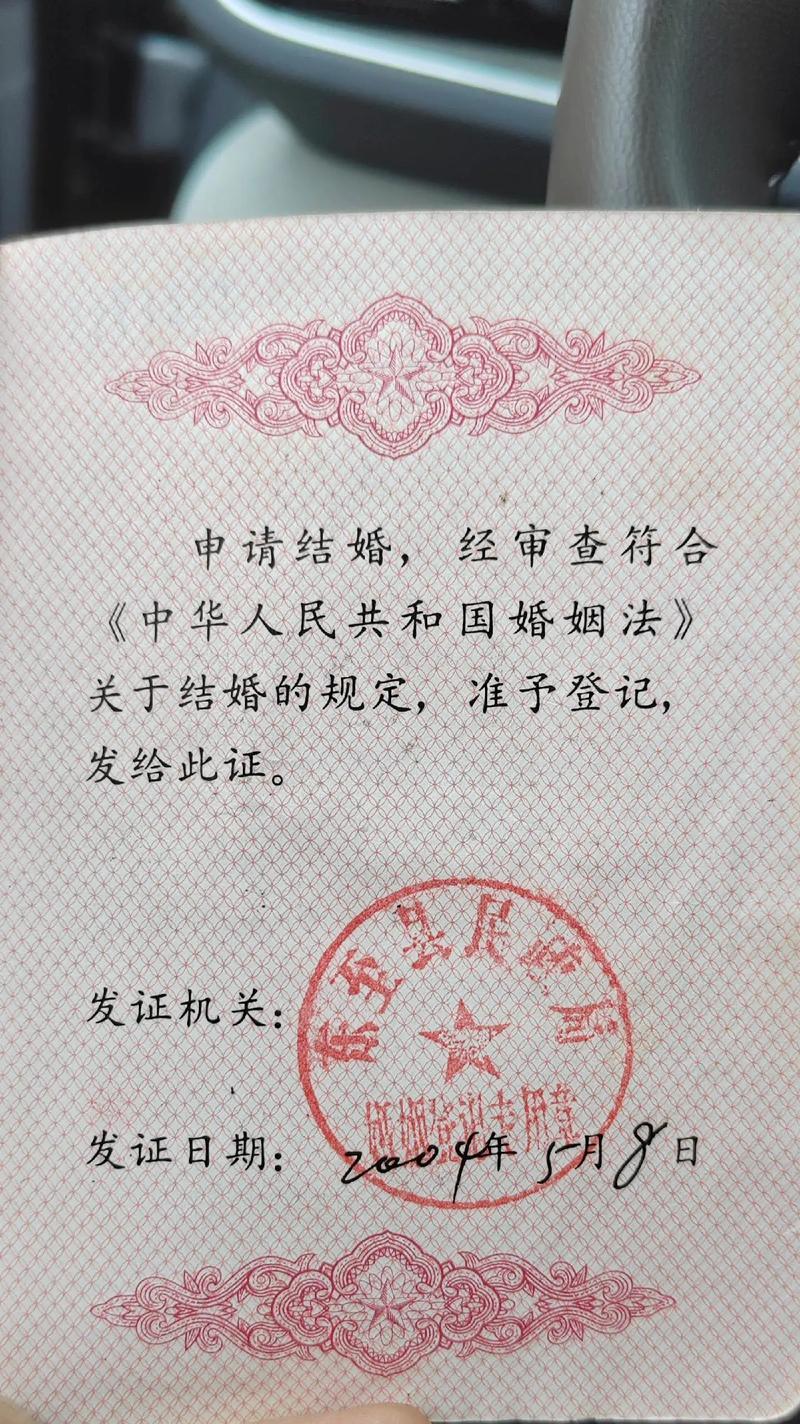 申请结婚，经审查符合
《中华人民共和国婚姻法》
关于结婚的规定，准予登记，
发给此证。
发证机关：
东至县民政局
婚姻登记专用章
发证日期：2004年5月8日